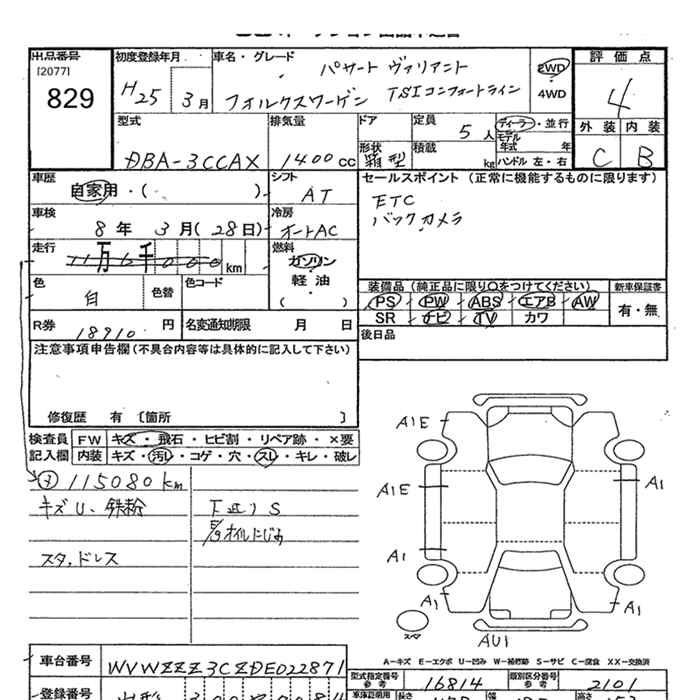 出品番号
[2077]
829
初度登録年月
H25 3月
車名・グレード
パサート ヴァリアント
フォルクスワーゲン TSIコンフォートライン
2WD
4WD
評価点
4
外装 内装
C B
型式
DBA-3CCAX
排気量
1400 cc
ドア
形状
箱型
定員
5 人
積載
kg
ディーラー・並行
モデル年式 年
ハンドル 左・右
車歴
自家用・( )
シフト
AT
セールスポイント (正常に機能するものに限ります)
ETC
バックカメラ
車検
8年 3月(28日)
冷房
オートAC
走行
万 千 km
燃料
ガソリン
軽油
( )
色
白
色替
色コード
装備品 (純正品に限り○をつけてください)
PS PW ABS エアB AW
SR ナビ TV カワ
新車保証書
有・無
R券
18910 円
名変通知期限 月 日
後日品
注意事項申告欄(不具合内容等は具体的に記入して下さい)
修復歴 有 〔箇所 〕
検査員
記入欄
FW キズ・飛石・ヒビ割・リペア跡・×要
内装 キズ・汚れ・コゲ・穴・スレ・キレ・破レ
115080km
キズU、鉄粉
スタッドレス
下廻りS
E/gオイルにじみ
A1E
A1E
A1
A1
A1
A1
AU1
スペア
A-キズ E-エクボ U-凹み W-補修跡 S-サビ C-腐食 XX-交換済
車台番号
WVWZZZ3CZDE022871
型式指定番号
参考
16814
類別区分番号
参考
2101
登録番号
車庫証明用
長さ
幅
高さ